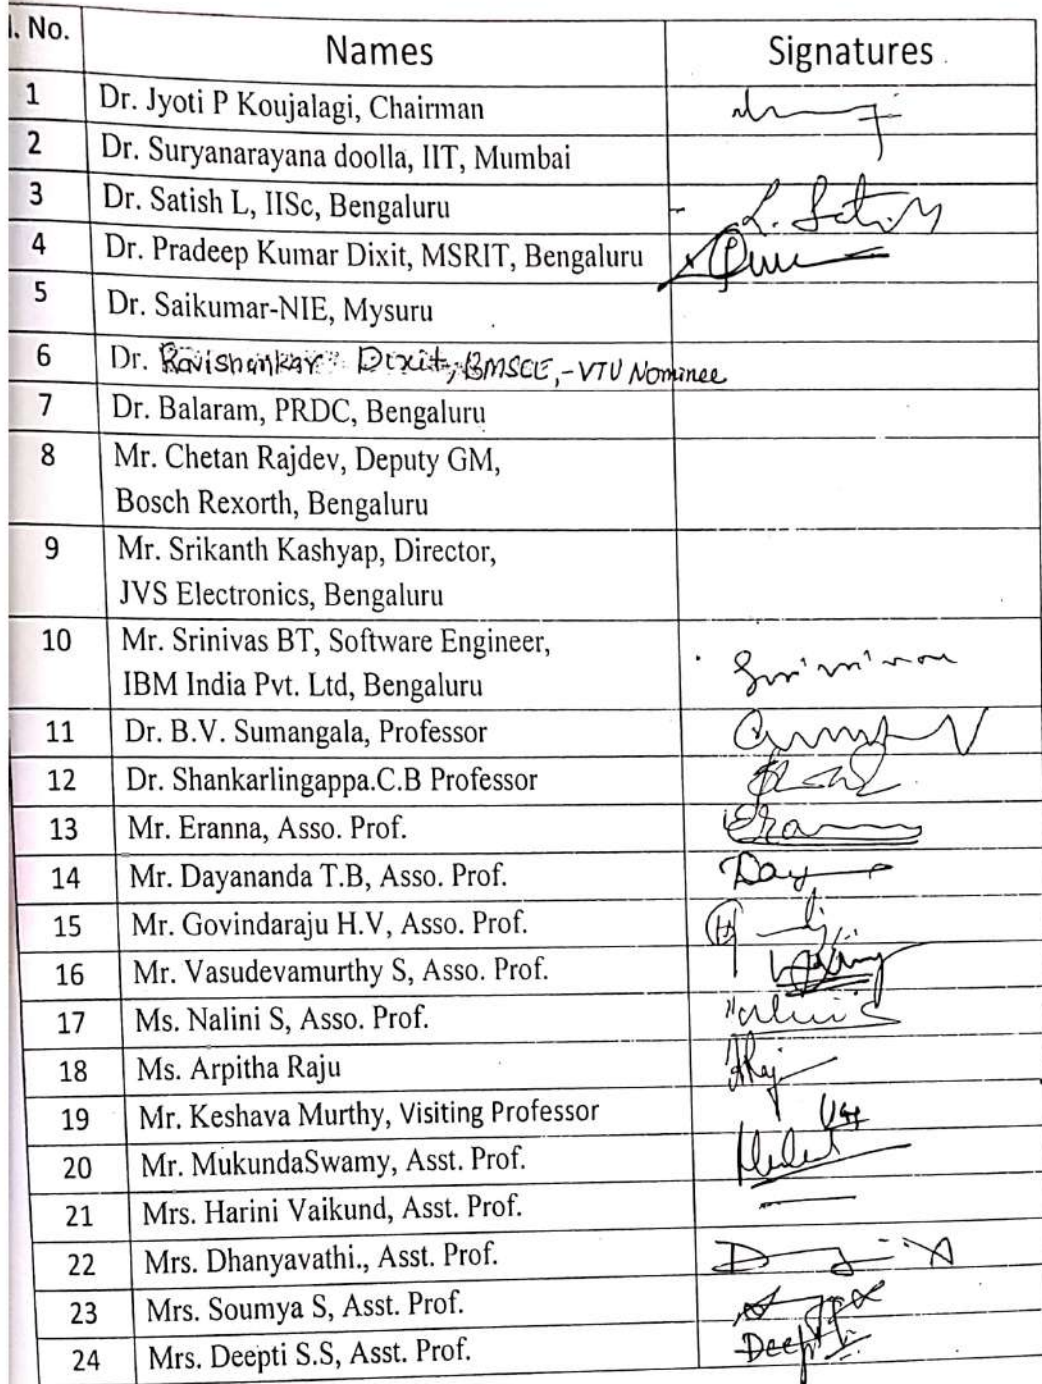 l. No. Names Signatures
1 Dr. Jyoti P Koujalagi, Chairman
2 Dr. Suryanarayana doolla, IIT, Mumbai
3 Dr. Satish L, IISc, Bengaluru L. Satish
4 Dr. Pradeep Kumar Dixit, MSRIT, Bengaluru
5 Dr. Saikumar-NIE, Mysuru
6 Dr. Ravishankar Dixit, BMSCE,-VTU Nominee
7 Dr. Balaram, PRDC, Bengaluru
8 Mr. Chetan Rajdev, Deputy GM,
Bosch Rexorth, Bengaluru
9 Mr. Srikanth Kashyap, Director,
JVS Electronics, Bengaluru
10 Mr. Srinivas BT, Software Engineer,
IBM India Pvt. Ltd, Bengaluru
11 Dr. B.V. Sumangala, Professor
12 Dr. Shankarlingappa.C.B Professor
13 Mr. Eranna, Asso. Prof.
14 Mr. Dayananda T.B, Asso. Prof. Day
15 Mr. Govindaraju H.V, Asso. Prof.
16 Mr. Vasudevamurthy S, Asso. Prof.
17 Ms. Nalini S, Asso. Prof. Nalini S
18 Ms. Arpitha Raju
19 Mr. Keshava Murthy, Visiting Professor
20 Mr. MukundaSwamy, Asst. Prof.
21 Mrs. Harini Vaikund, Asst. Prof.
22 Mrs. Dhanyavathi., Asst. Prof.
23 Mrs. Soumya S, Asst. Prof.
24 Mrs. Deepti S.S, Asst. Prof. Deepti